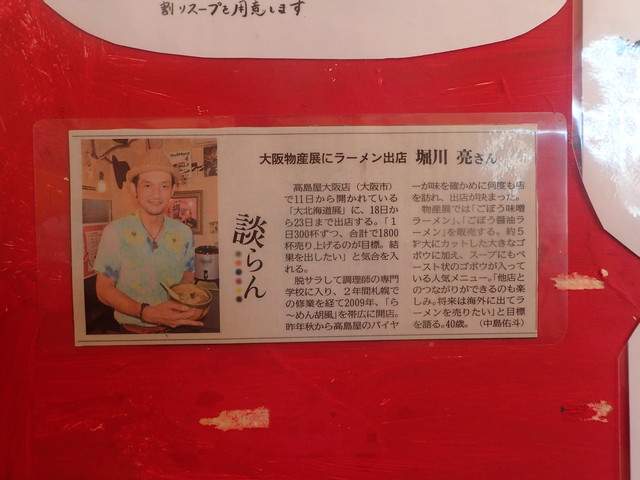 割りスープを用意します
大阪物産展にラーメン出店 堀川 亮さん
談らん
高島屋大阪店(大阪市)
で11日から開かれている
「大北海道展」に、18日か
ら23日まで出店する。「1
日300杯ずつ、合計で1800
杯売り上げるのが目標。結
果を出したい」と気合を入
れる。
脱サラして調理師の専門
学校に入り、2年間札幌で
の修業を経て2009年、「ら
～めん胡風」を帯広に開店。
昨年秋から高島屋のバイヤ
ーが味を確かめに何度も店
を訪れ、出店が決まった。
物産展では「ごぼう味噌
ラーメン」、「ごぼう醤油ラ
ーメン」を販売する。約5
㌢大にカットした大きなゴ
ボウに加え、スープにもペ
ースト状のゴボウが入って
いる人気メニュー。「他店と
のつながりができるのも楽
しみ。将来は海外に出てラ
ーメンを売りたい」と目標
を語る。40歳。(中島佑斗)